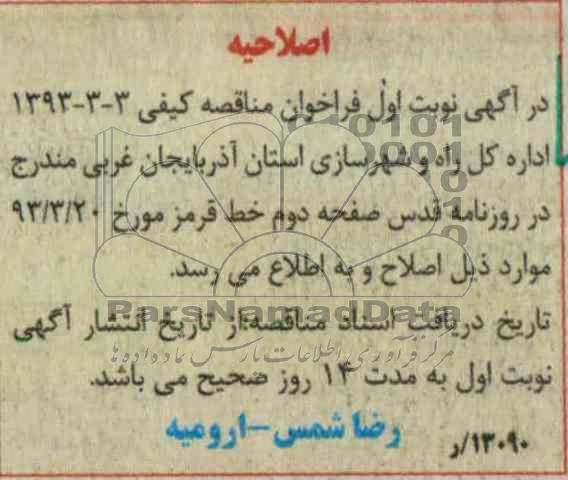 اصلاحیه
در آگهی نوبت اول فراخوان مناقصه کیفی ۳-۳-۱۳۹۳
اداره کل راه و شهرسازی استان آذربایجان غربی مندرج
در روزنامه قدس صفحه دوم خط قرمز مورخ ۹۳/۳/۲۰
موارد ذیل اصلاح و به اطلاع می رسد.
ParsNamadData
تاریخ دریافت اسناد مناقصه:از تاریخ انتشار آگهی
مرکز فرآوری اطلاعات پارس نماد داده ها
نوبت اول به مدت ۱۴ روز صحیح می باشد.
رضا شمس-ارومیه
۱۳۰۹۰/ر